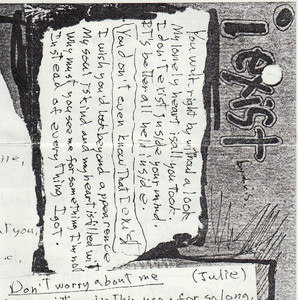 I exist
You walk right by without a look
My lonely heart is all you took.
I don't exist inside your mind.
It's better all held inside.
You don't even know that I exist
I wish you'd look beyond appearence
My soul is kind and my heart is filled w/it
Why must you see me for something I'm not
Instead of everything I got.
me,
at you,
Don't worry about me (Julie)
for so long.